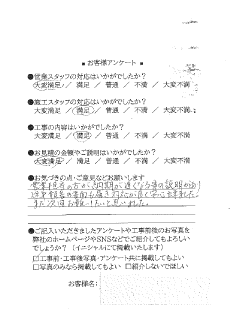 ■ お客様アンケート ■
●営業スタッフの対応はいかがでしたか？
大変満足 ／ 満足 ／ 普通 ／ 不満 ／ 大変不満
●施工スタッフの対応はいかがでしたか？
大変満足 ／ 満足 ／ 普通 ／ 不満 ／ 大変不満
●工事の内容はいかがでしたか？
大変満足 ／ 満足 ／ 普通 ／ 不満 ／ 大変不満
●お見積の金額やご説明はいかがでしたか？
大変満足 ／ 満足 ／ 普通 ／ 不満 ／ 大変不満
●お気づきの点・ご意見などお願いします
営業担当の方が
また次回お願いしたいと思いました。
●ご記入いただきましたアンケートや工事前後のお写真を
弊社のホームページやSNSなどでご紹介してもよろしい
でしょうか？（イニシャルにて掲載いたします）
□工事前・工事後写真・アンケート共に掲載してもよい
□写真のみなら掲載してもよい □紹介しないでほしい
お客様名：